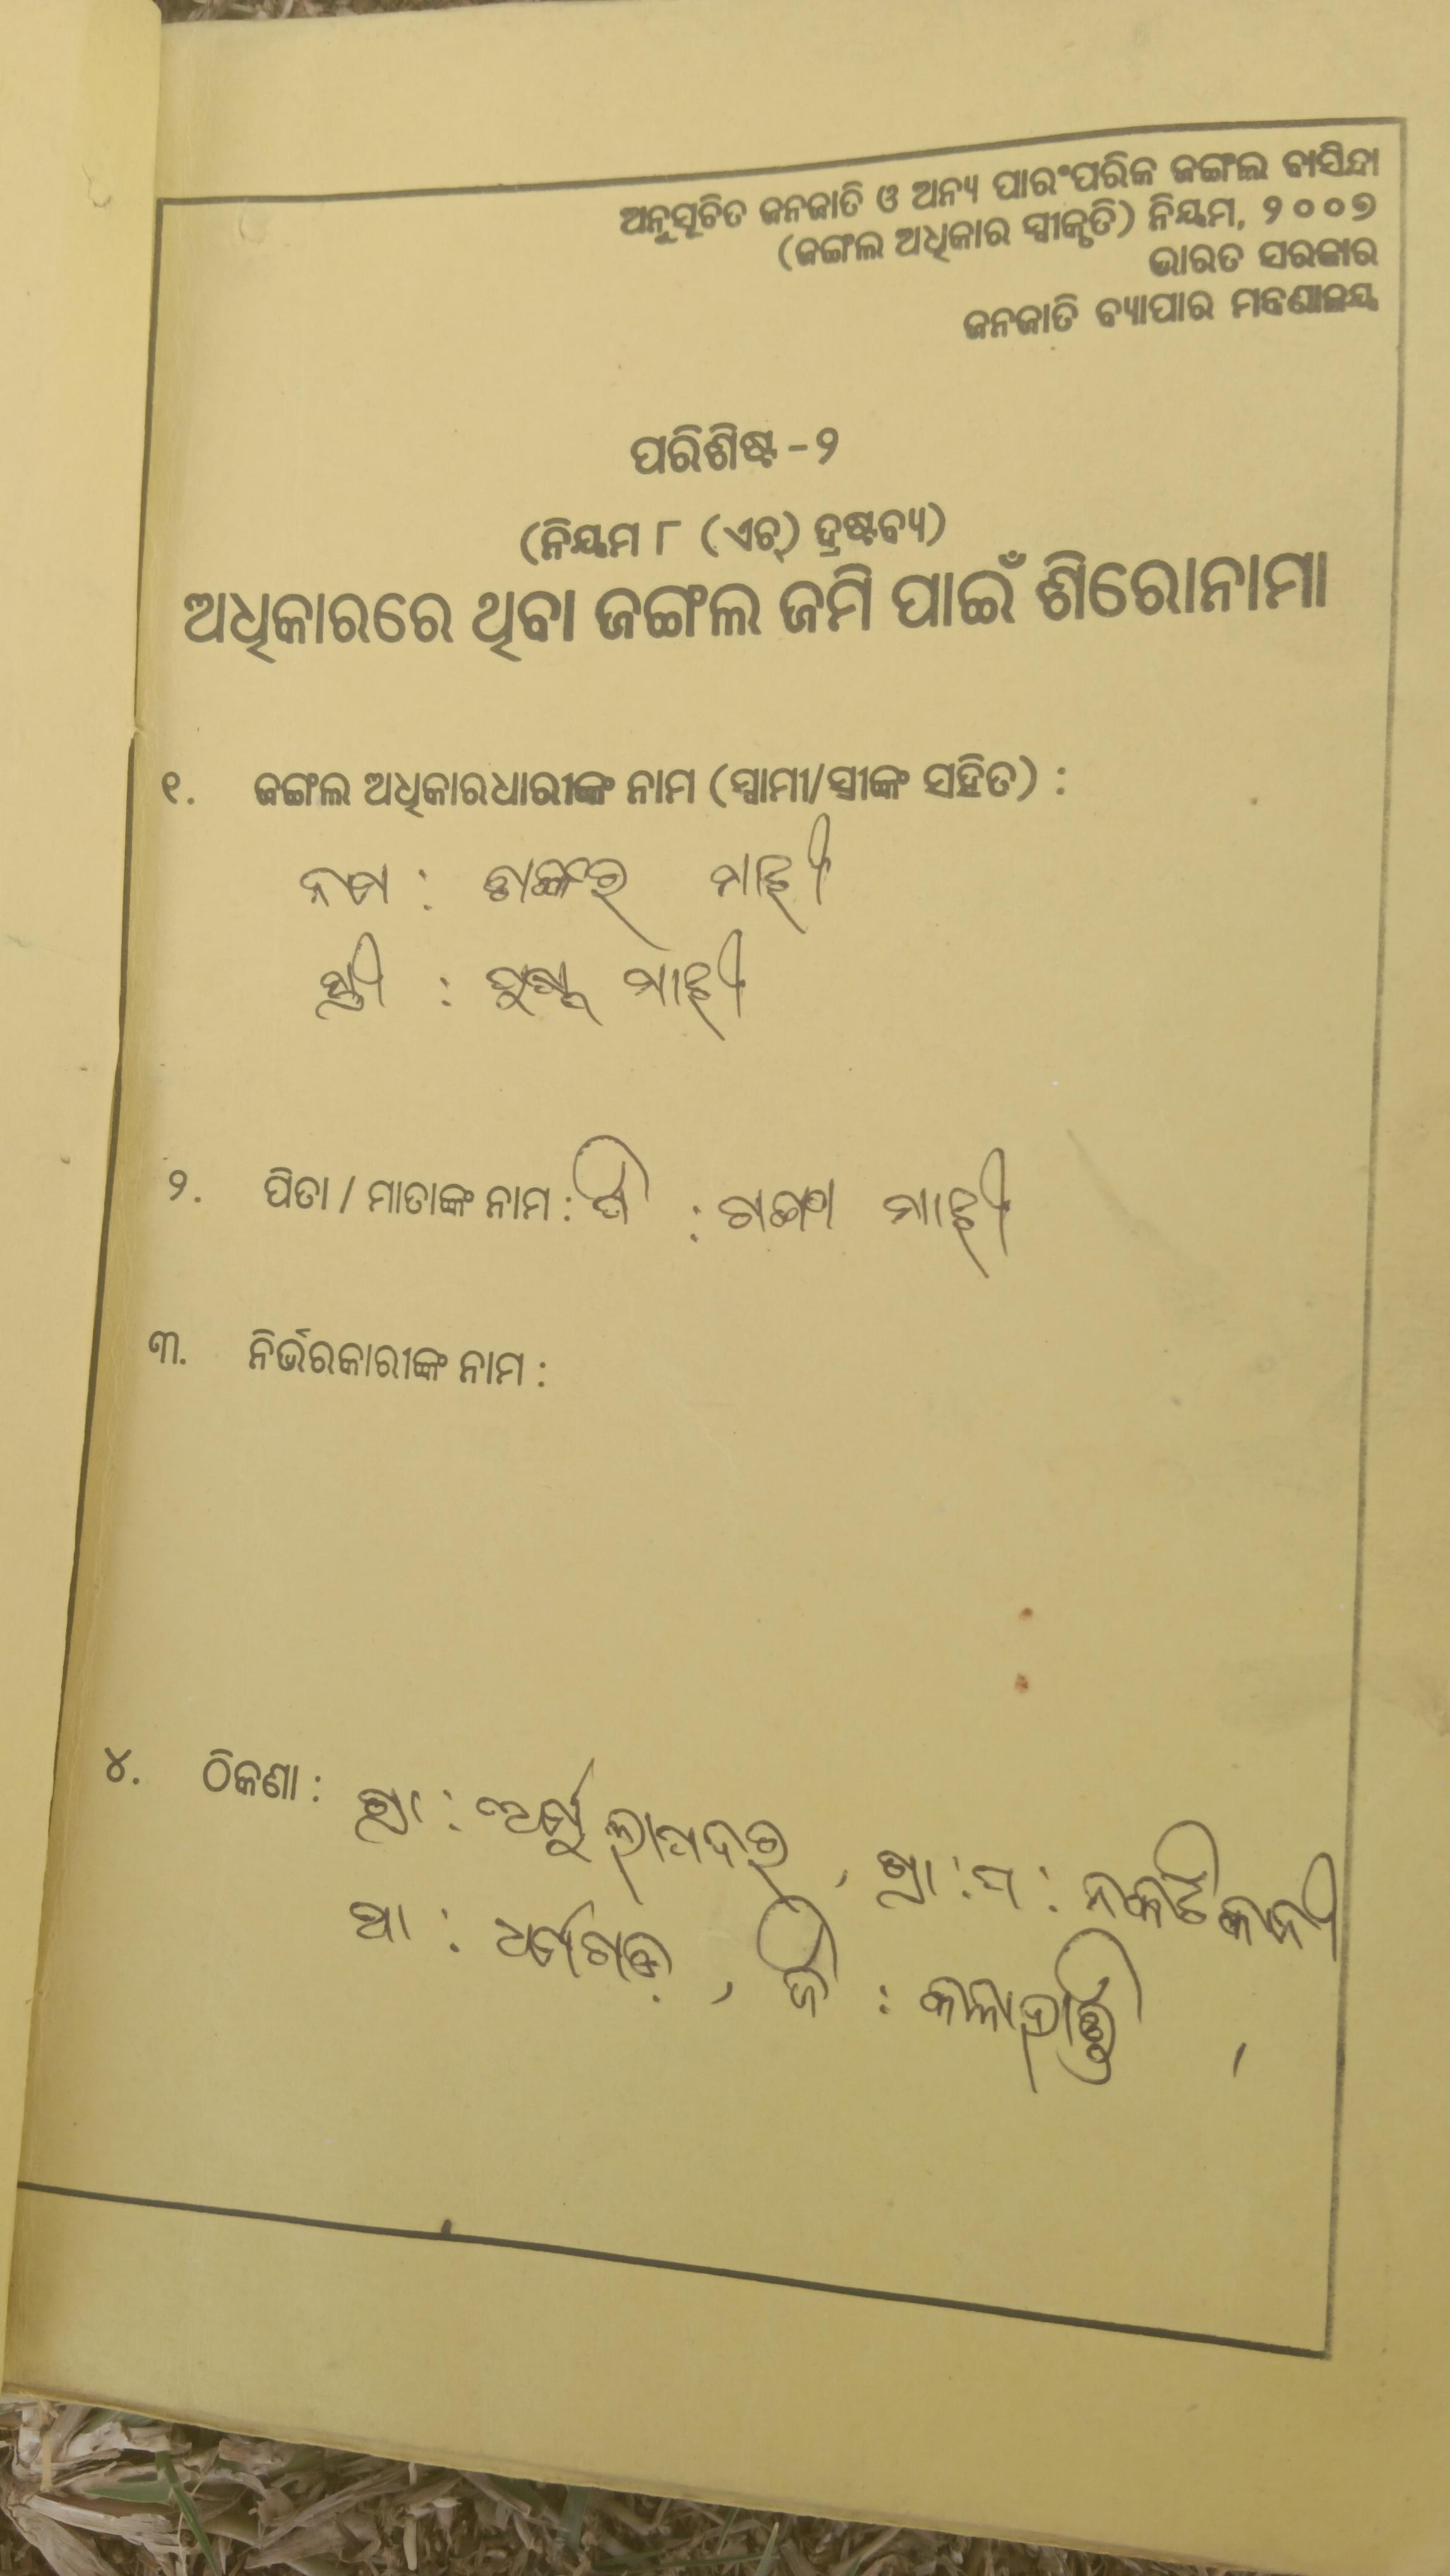 ଅନୁସୂଚିତ ଜନଜାତି ଓ ଅନ୍ୟ ପାରଂପରିକ ଜଙ୍ଗଲ ବାସିନ୍ଦା
(ଜଙ୍ଗଲ ଅଧିକାର ସ୍ୱୀକୃତି) ନିୟମ, ୨୦୦୭
ଭାରତ ସରକାର
ଜନଜାତି ବ୍ୟାପାର ମନ୍ତ୍ରଣାଳୟ
ପରିଶିଷ୍ଟ - ୨
(ନିୟମ ୮ (ଏଚ୍) ଦ୍ରଷ୍ଟବ୍ୟ)
ଅଧିକାରରେ ଥିବା ଜଙ୍ଗଲ ଜମି ପାଇଁ ଶିରୋନାମା
୧. ଜଙ୍ଗଲ ଅଧିକାରଧାରୀଙ୍କ ନାମ (ସ୍ୱାମୀ/ସ୍ତ୍ରୀଙ୍କ ସହିତ) :
ନାମ : ମାଝୀ
ସ୍ତ୍ରୀ : ମାଝୀ
୨. ପିତା / ମାତାଙ୍କ ନାମ : ପି : ମାଝୀ
୩. ନିର୍ଭରକାରୀଙ୍କ ନାମ :
୪. ଠିକଣା : ଗ୍ରା : , ଗ୍ରା : ପ : ନକଟିକାନୀ
ଥା : ଧର୍ମଗଡ଼ , ଜି : କଳାହାଣ୍ଡି ,